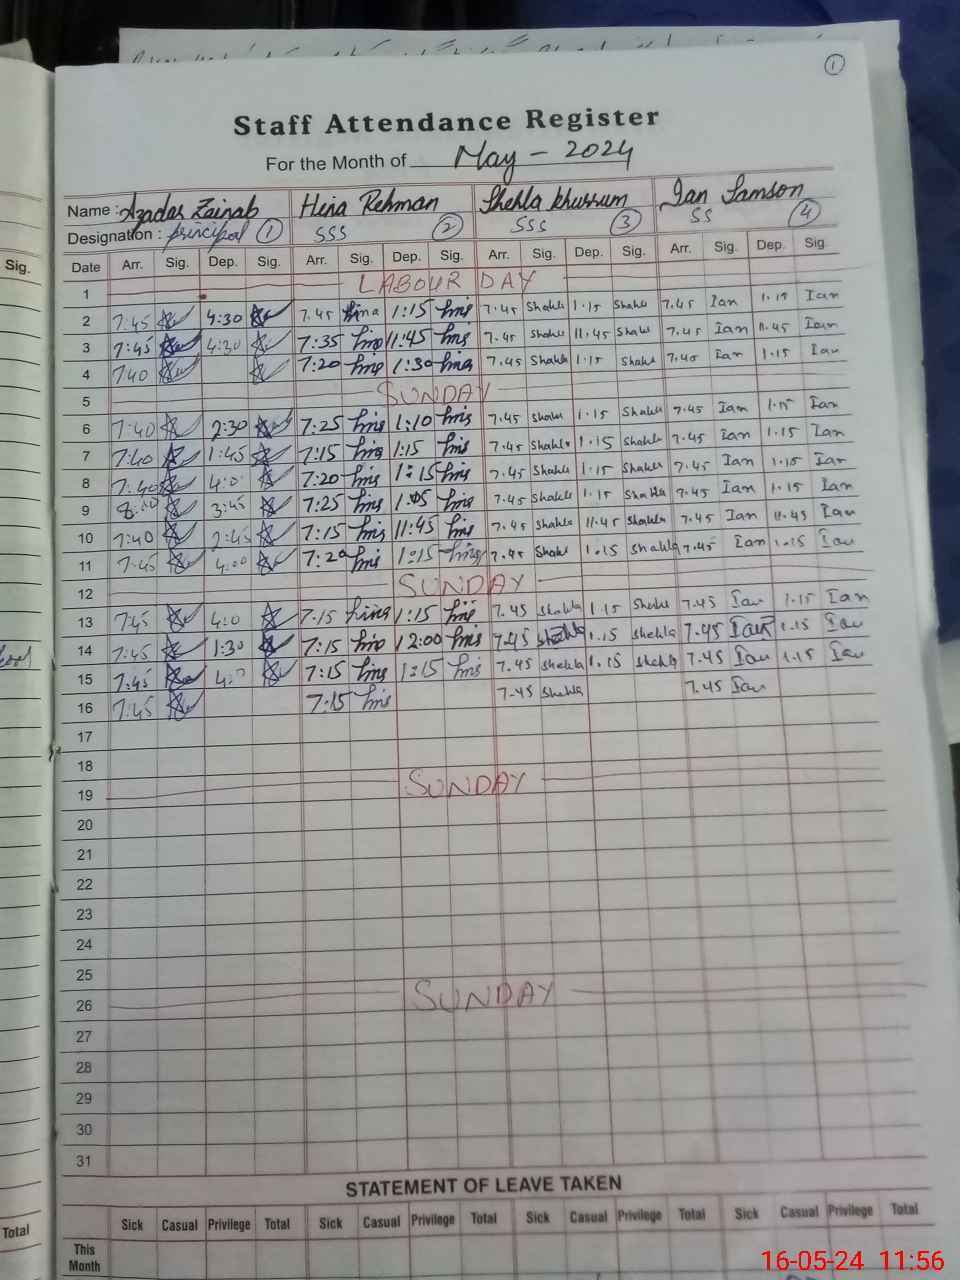 ①
Staff Attendance Register
For the Month of May - 2024
Name : Azadar Zainab Hina Rehman Shehla Khussum Ian Samson
Designation : principal ① SSS ② SSS ③ SS ④
Sig.
Date Arr. Sig. Dep. Sig. Arr. Sig. Dep. Sig. Arr. Sig. Dep. Sig. Arr. Sig. Dep. Sig.
1 LABOUR DAY
2 7:45 4:30 7.45 Hina 1:15 7.45 Shahla 1.15 Shahla 7.45 Ian 1.15 Ian
3 7:45 4:30 7:35 11:45 7.45 Shahla 11.45 Shahla 7.45 Ian 11.45 Ian
4 7:40 7:20 1:30 7.45 Shahla 1.15 Shahla 7.45 Ian 1.15 Ian
5 SUNDAY
6 7:40 2:30 7:25 1:10 7.45 Shahla 1.15 Shahla 7.45 Ian 1.15 Ian
7 7:40 1:45 7:15 1:15 7.45 Shahla 1.15 Shahla 7.45 Ian 1.15 Ian
8 7:40 4:0 7:20 1:15 7.45 Shahla 1.15 Shahla 7.45 Ian 1.15 Ian
9 8:00 3:45 7:25 1:05 7.45 Shahla 1.15 Shahla 7.45 Ian 1.15 Ian
10 7:40 2:45 7:15 11:45 7.45 Shahla 11.45 Shahla 7.45 Ian 11.45 Ian
11 7:45 4:00 7:20 1:15 7.45 Shahla 1.15 Shahla 7.45 Ian 1.15 Ian
12 SUNDAY
13 7:45 4:0 7:15 Hina 1:15 7.45 Shahla 1.15 Shahla 7.45 Ian 1.15 Ian
14 7:45 1:30 7:15 12:00 7.45 Shehla 1.15 Shehla 7.45 Ian 1.15 Ian
15 7:45 4:0 7:15 1:15 7.45 Shehla 1.15 Shehla 7.45 Ian 1.15 Ian
16 7:45 7:15 7.45 Shehla 7.45 Ian
17
18
19 SUNDAY
20
21
22
23
24
25
26 SUNDAY
27
28
29
30
31
STATEMENT OF LEAVE TAKEN
Total
Sick Casual Privilege Total Sick Casual Privilege Total Sick Casual Privilege Total Sick Casual Privilege Total
This Month
16-05-24 11:56